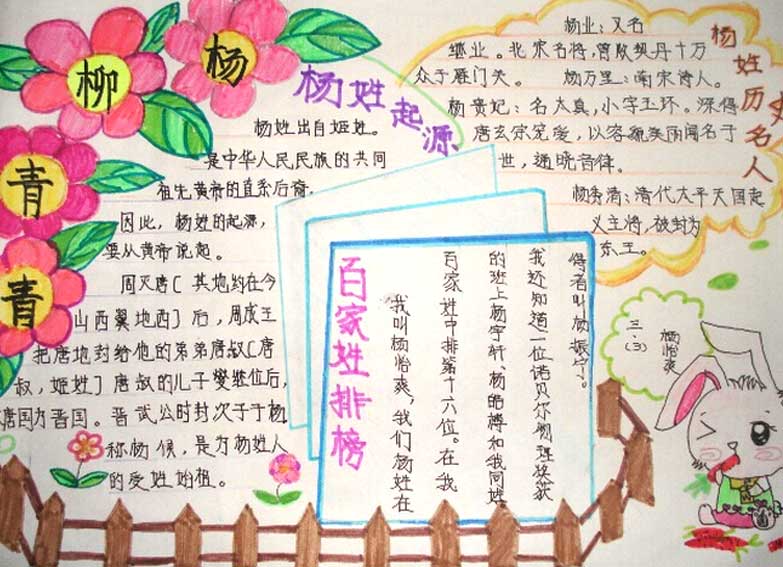 杨柳青青
杨姓起源
杨姓出自姬姓。
是中华人民民族的共同
祖先黄帝的直系后裔,
因此,杨姓的起源,
要从黄帝说起。
周灭唐〔其地约在今
山西翼地西〕后,周成王
把唐地封给他的弟弟唐叔〔唐
叔,姬姓〕唐叔的儿子燮继位后,
唐国为晋国。晋武公时封次子于杨
称杨侯,是为杨姓人
的受姓始祖。
杨姓历史名人
杨业:又名
继业。北宋名将,曾败契丹十万
众于雁门关。 杨万里:南宋诗人。
杨贵妃:名太真,小字玉环。深得
唐玄宗宠爱,以容貌美丽闻名于
世,通晓音律。
杨秀清:清代太平天国起
义主将,被封为
东王。
百家姓排榜
我叫杨怡爽,我们杨姓在
百家姓中排第十六位。在我
的班上杨宇轩、杨皓博和我同姓
我还知道一位诺贝尔物理奖获
得者叫杨振宁。
三.(3)
杨怡爽